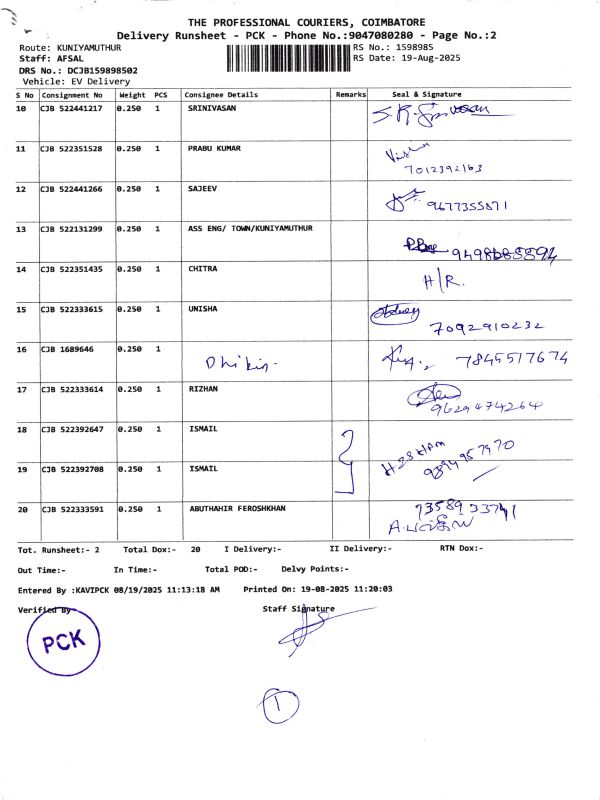 THE PROFESSIONAL COURIERS, COIMBATORE
Delivery Runsheet - PCK - Phone No.:9047080280 - Page No.:2
Route: KUNIYAMUTHUR RS No.: 1598985
Staff: AFSAL RS Date: 19-Aug-2025
DRS No.: DCJB159898502
Vehicle: EV Delivery
S No Consignment No Weight PCS Consignee Details Remarks Seal & Signature
10 CJB 522441217 0.250 1 SRINIVASAN
11 CJB 522351528 0.250 1 PRABU KUMAR
7012392163
12 CJB 522441266 0.250 1 SAJEEV
9677355871
13 CJB 522131299 0.250 1 ASS ENG/ TOWN/KUNIYAMUTHUR
14 CJB 522351435 0.250 1 CHITRA
H/R.
15 CJB 522333615 0.250 1 UNISHA
7092910232
16 CJB 1689646 0.250 1
7845517674
17 CJB 522333614 0.250 1 RIZHAN
9629474264
18 CJB 522392647 0.250 1 ISMAIL
19 CJB 522392708 0.250 1 ISMAIL
20 CJB 522333591 0.250 1 ABUTHAHIR FEROSHKHAN
Tot. Runsheet:- 2 Total Dox:- 20 I Delivery:- II Delivery:- RTN Dox:-
Out Time:- In Time:- Total POD:- Delvy Points:-
Entered By :KAVIPCK 08/19/2025 11:13:18 AM Printed On: 19-08-2025 11:20:03
Verified By Staff Signature
PCK
1